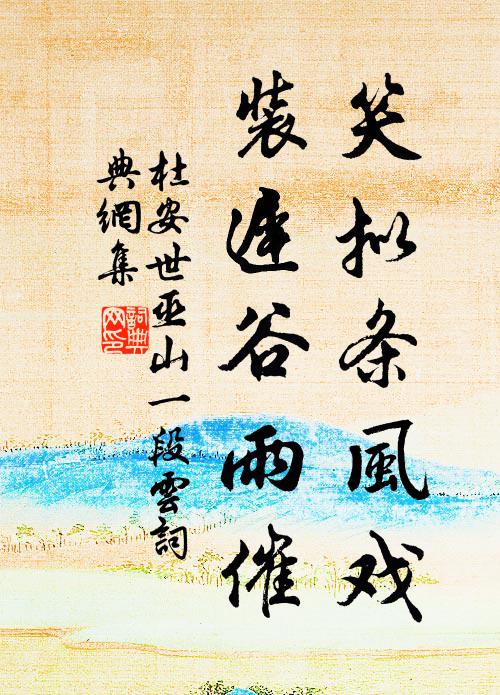 笑拟条風戏
裝遲谷雨催
杜安世巫山一段雲詞
典網集
詞典
网印